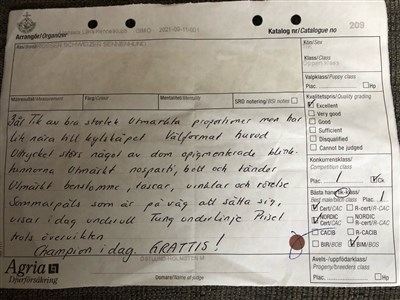 Arrangör/Organizer
Katalog nr/Catalogue no
209
Kön/Sex
SCHWEIZER SENNENHUND
Klass/Class
Valpklass/Puppy class
Plac.
Hp
SRD notering/BSI notes
Kvalitetspris/Quality grading
Excellent
Very good
Good
Sufficient
Disqualified
Cannot be judged
5år Tik av bra storlek Utmärkta proportioner men har
lite nära till kylskåpet Välformat huvud
Uttrycket störs något av dom opigmenterade blink-
hinnorna Utmärkt nosparti, bett och tänder
Utmärkt benstomme, tassar, vinklar och rörelse
Sommarpäls som är på väg att sätta sig,
visar i dag underull Tung underlinje Prisel
trots övervikten
Champion i dag. GRATTIS!
Konkurrensklass/
Competition class
Plac.
1
Ck
Bästa han/tik-klass/
Best male/bitch class
Plac.
1
Cert/CAC
R-cert/R-CAC
NORDIC
Cert/CAC
NORDIC
R-cert/R-CAC
CACIB
R-CACIB
BIR/BOB
BIM/BOS
Avels-/uppfödarklass/
Progeny/breeders class
Plac.
Hp
Agria
Djurförsäkring
Domare/Name of judge